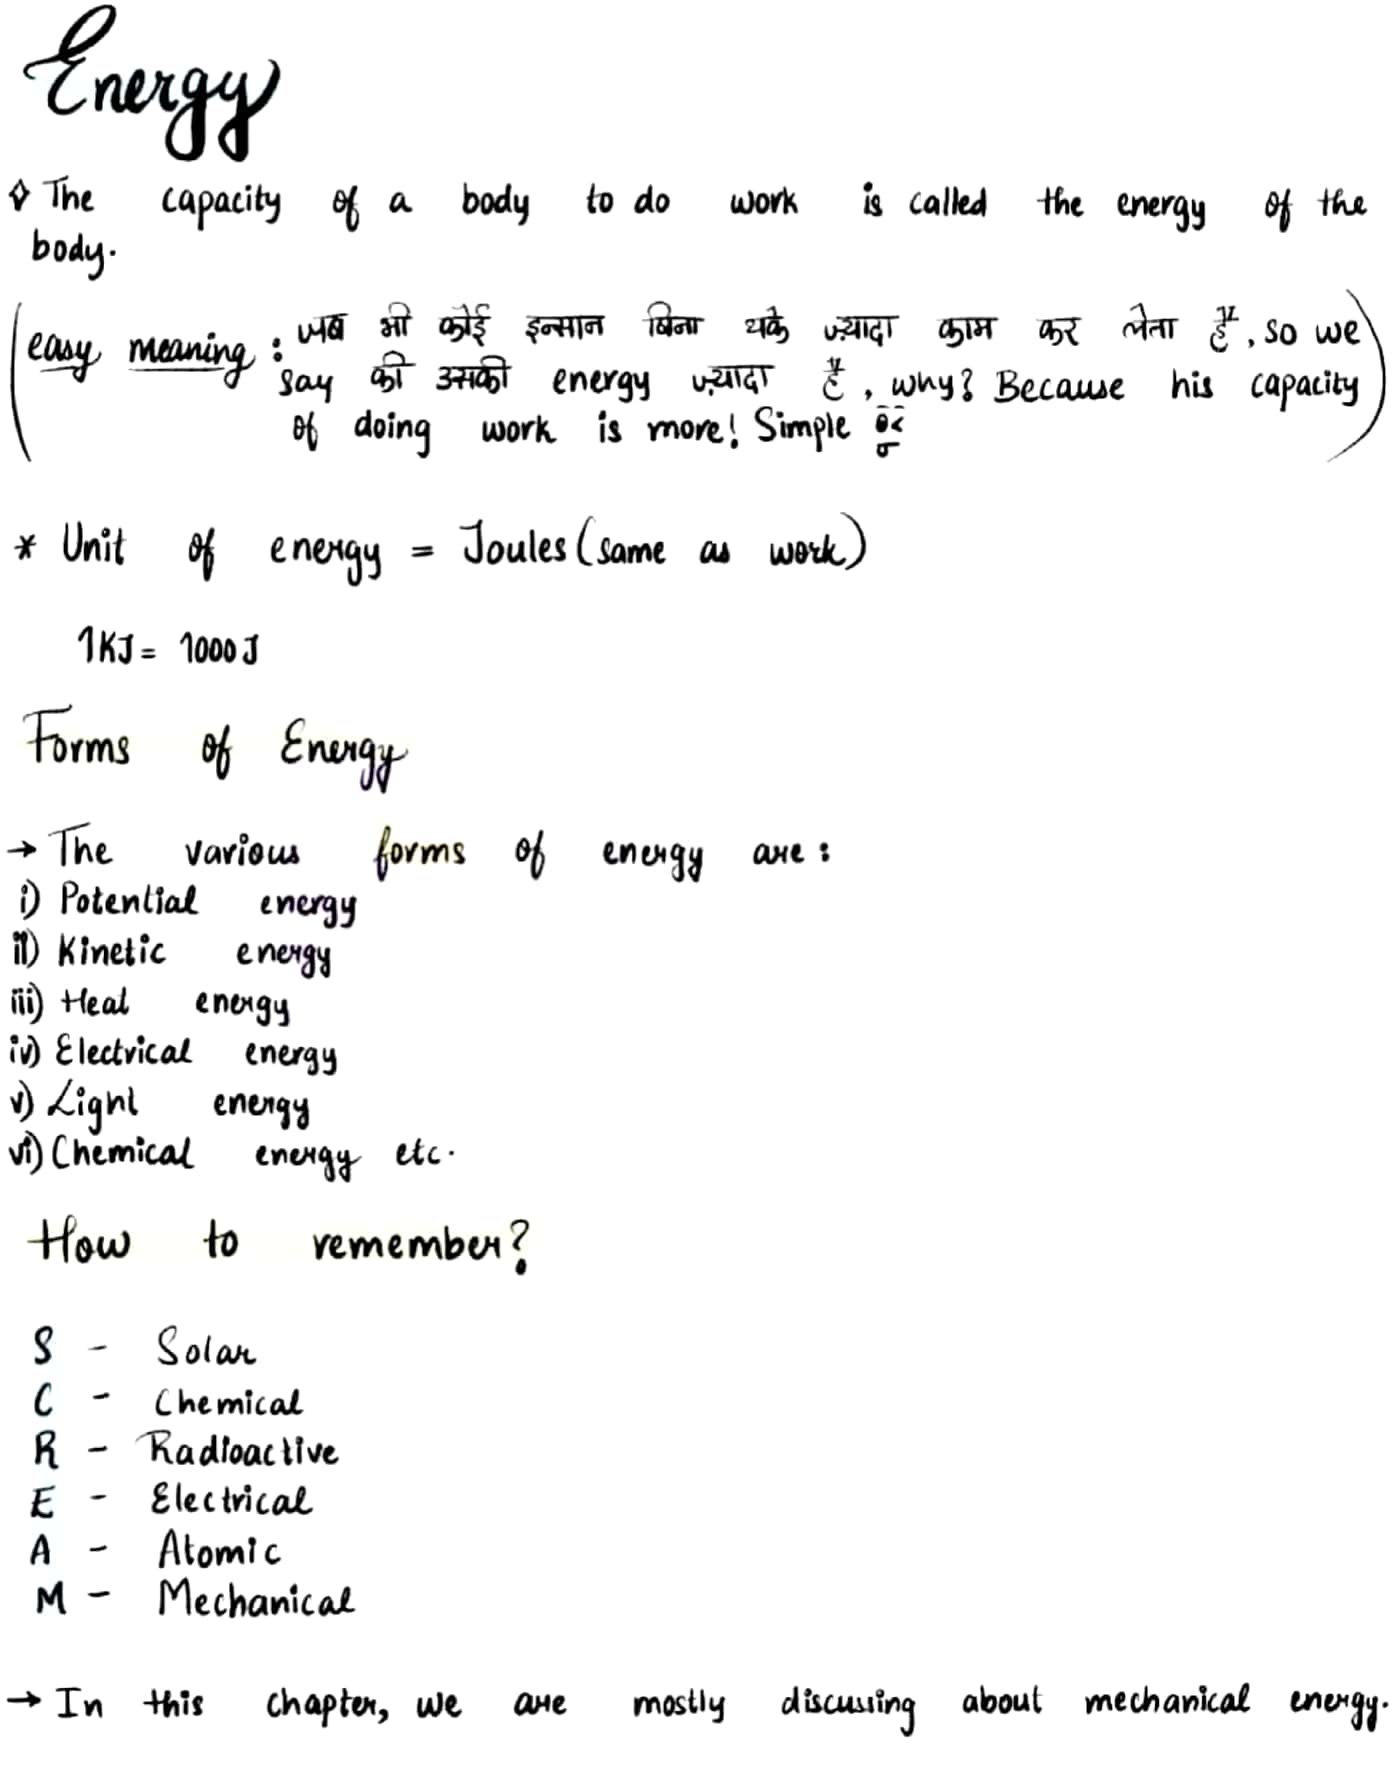 Energy
The capacity of a body to do work is called the energy of the
body.
(easy meaning : जब भी कोई इन्सान बिना थके ज़्यादा काम कर लेता हैं, so we
say की उसकी energy ज़्यादा हैं, why? Because his capacity
of doing work is more! Simple
* Unit of energy = Joules (same as work)
1KJ = 1000 J
Forms of Energy
→ The various forms of energy are :
i) Potential energy
ii) Kinetic energy
iii) Heat energy
iv) Electrical energy
v) Light energy
vi) Chemical energy etc.
How to remember?
S - Solar
C - Chemical
R - Radioactive
E - Electrical
A - Atomic
M - Mechanical
→ In this chapter, we are mostly discussing about mechanical energy.